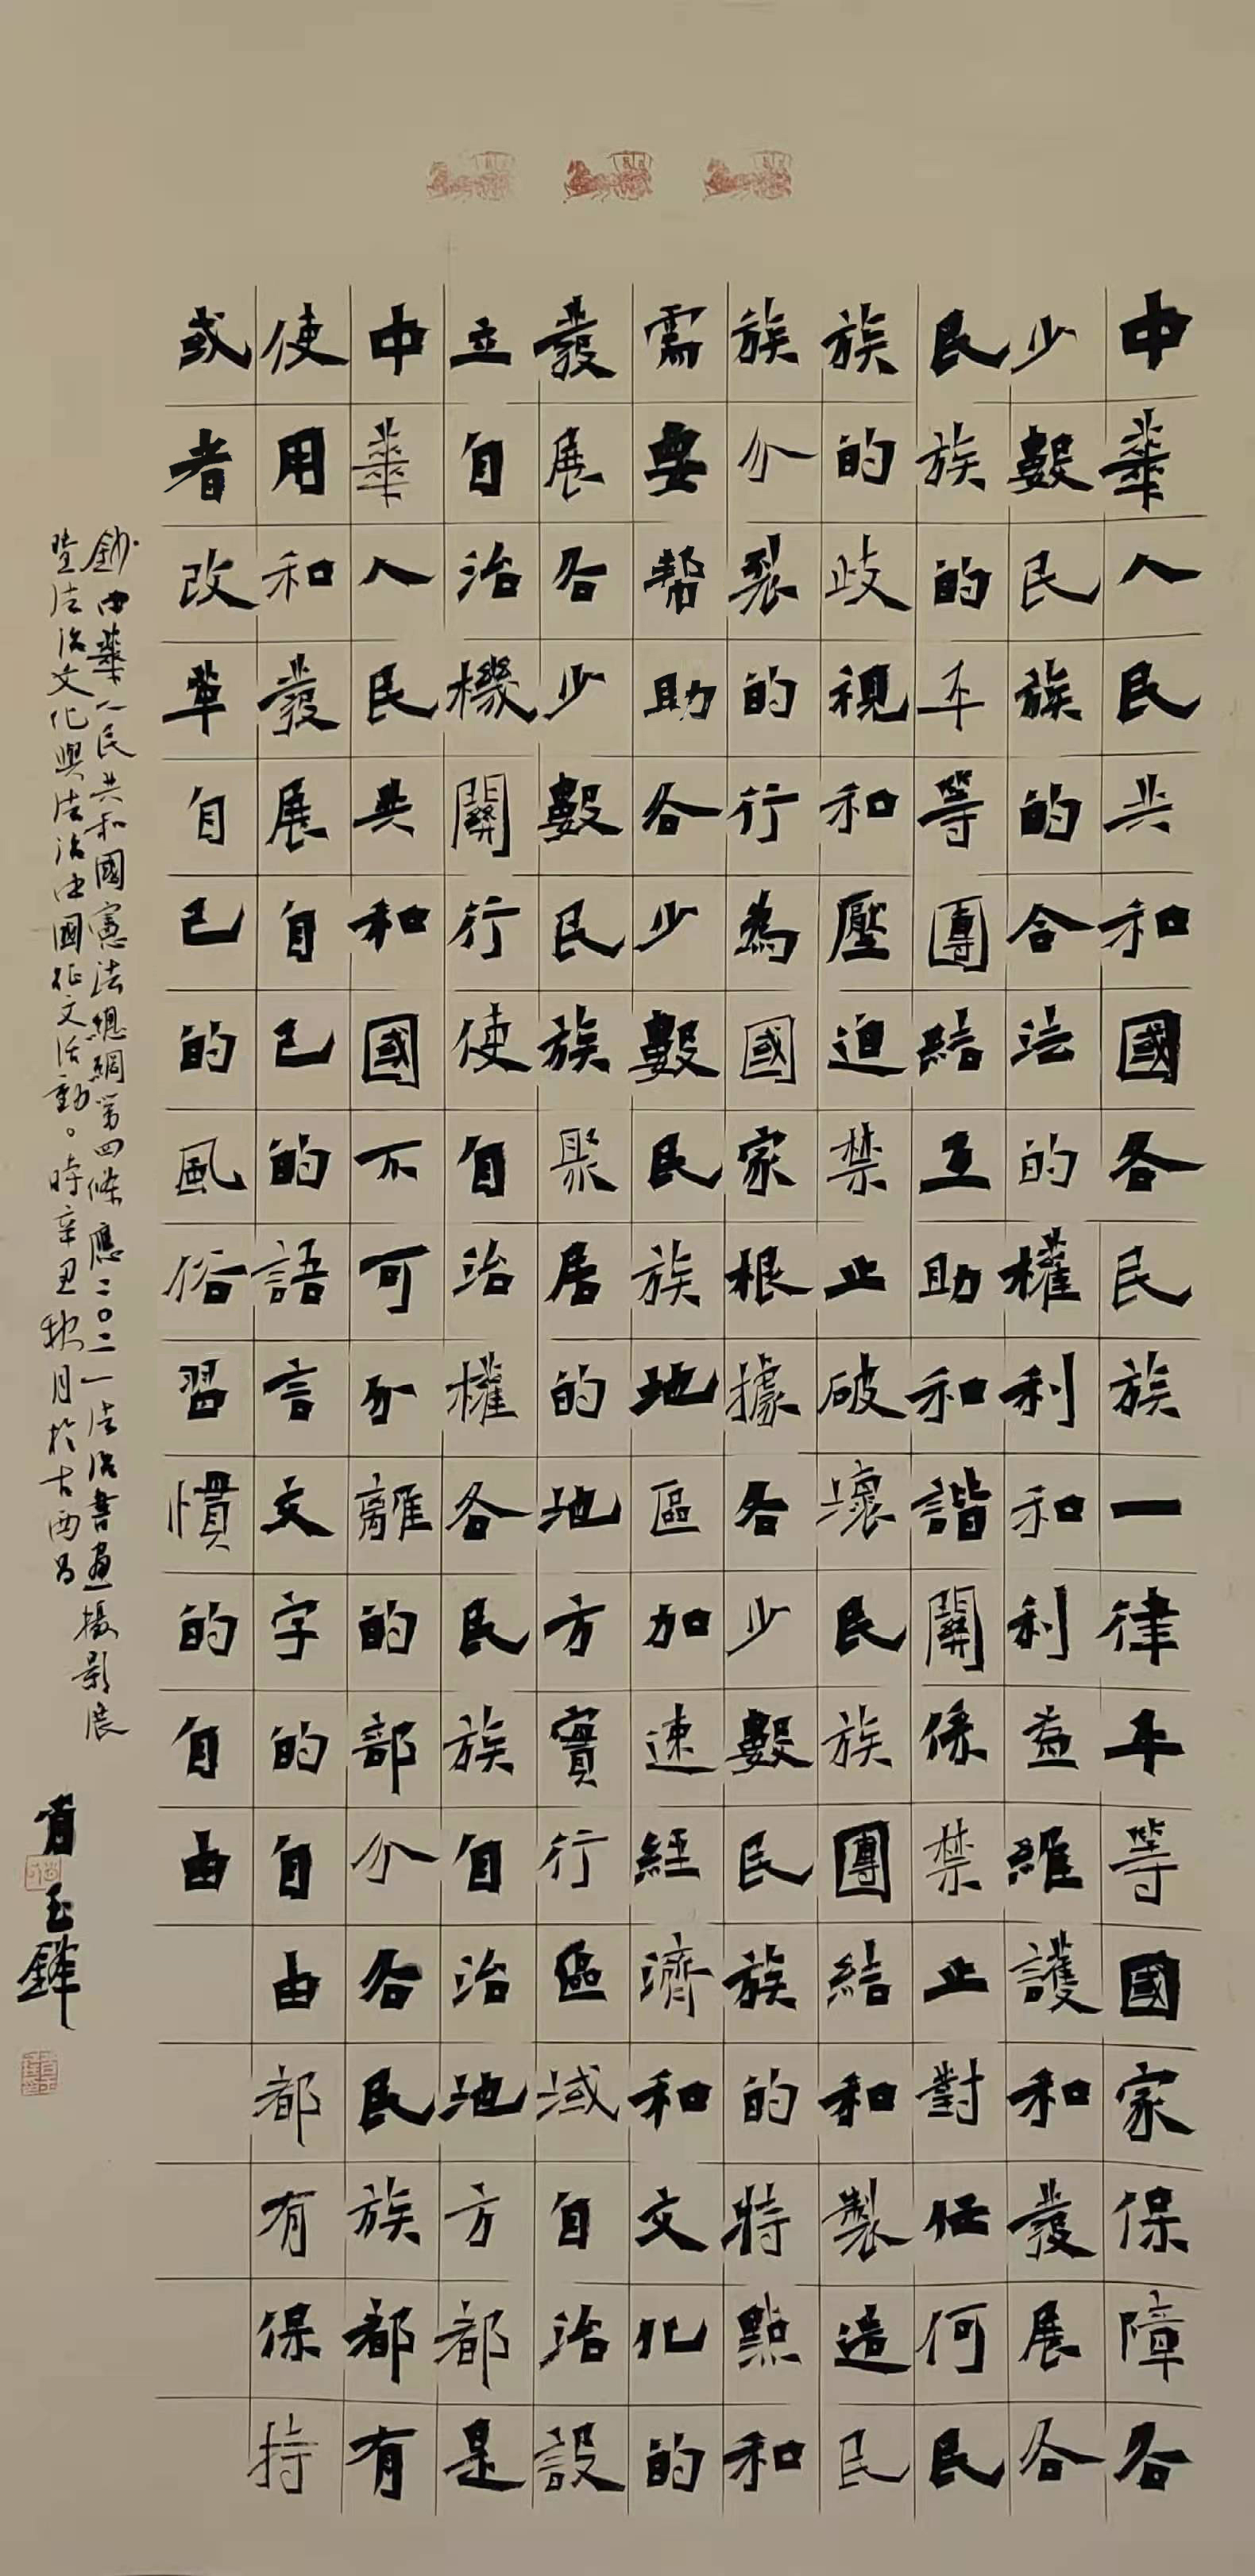 中華人民共和國各民族一律平等國家保障各
少數民族的合法的權利和利益維護和發展各
民族的平等團結互助和諧關係禁止對任何民
族的歧視和壓迫禁止破壞民族團結和製造民
族分裂的行為國家根據各少數民族的特點和
需要幫助各少數民族地區加速經濟和文化的
發展各少數民族聚居的地方實行區域自治設
立自治機關行使自治權各民族自治地方都是
中華人民共和國不可分離的部分各民族都有
使用和發展自己的語言文字的自由都有保持
或者改革自己的風俗習慣的自由
鈔中華人民共和國憲法總綱第四條應二〇二一法治書畫攝影展
暨法治文化與法治中國征文活動。時辛丑秋月於古西昌
肖玉